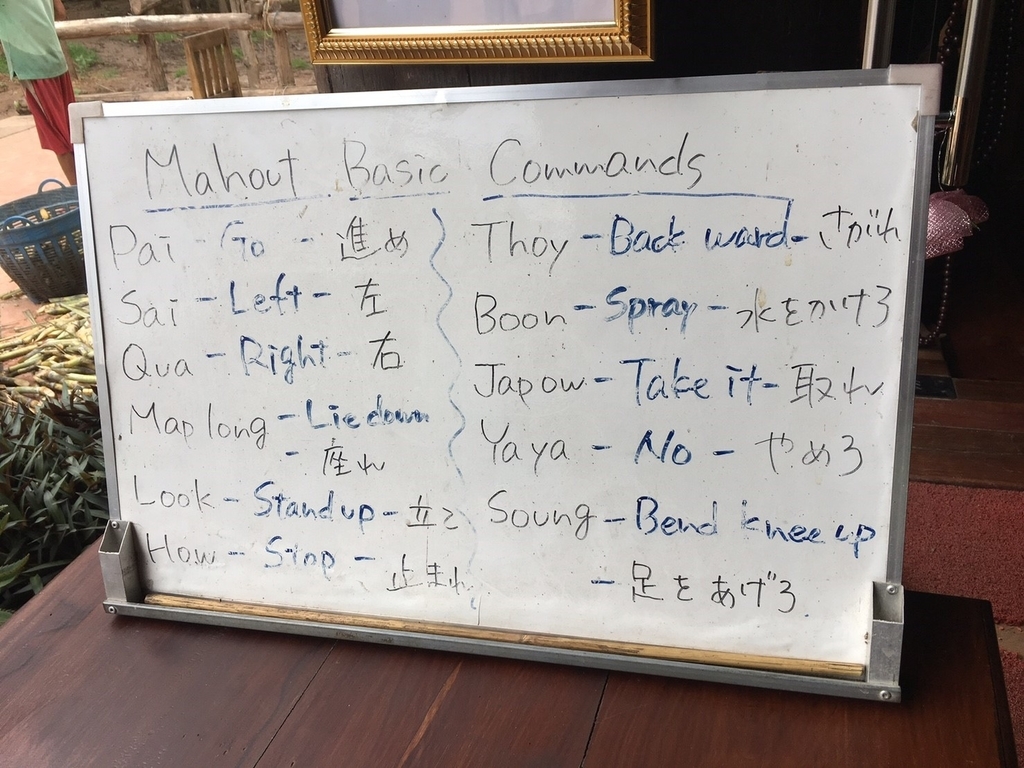 Mahout Basic Commands
Pai - Go - 進め
Sai - Left - 左
Qua - Right - 右
Map long - Lie down
- 座れ
Look - Stand up - 立て
How - Stop - 止まれ
Thoy - Back ward - さがれ
Boon - Spray - 水をかけろ
Japow - Take it - 取れ
Yaya - No - やめろ
Soung - Bend knee up
- 足をあげろ